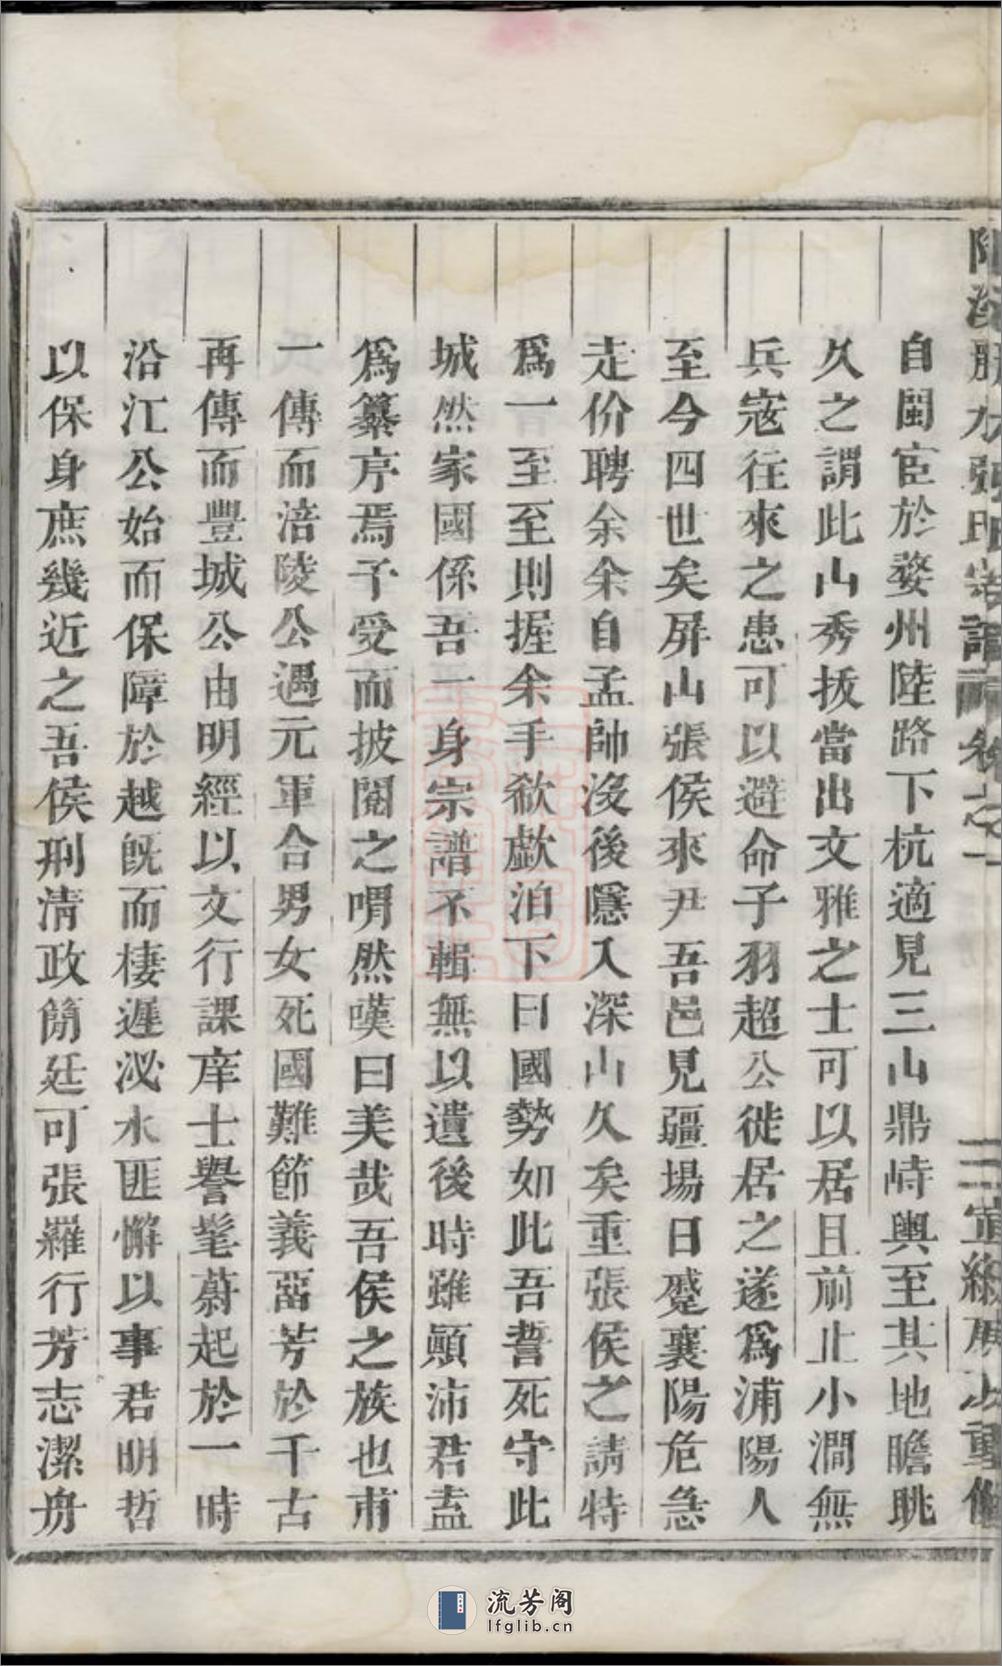 自閩宦於婺州陸路下杭適見三山鼎峙輿至其地瞻眺
久之謂此山秀拔當出文雅之士可以居且前止小澗無
兵寇往來之患可以避命子羽超公徙居之遂爲浦陽人
至今四世矣屏山張侯來尹吾邑見疆場日蹙襄陽危急
走价聘余余自孟帥沒後隱入深山久矣重張侯之請特
爲一至至則握余手欷歔泊下曰國勢如此吾誓死守此
城然家國係吾一身宗譜不輯無以遺後時雖顚沛君盍
爲纂序焉予受而披閱之喟然嘆曰美哉吾侯之族也甫
一傳而涪陵公遇元軍合男女死國難節義畱芳於千古
再傳而豐城公由明經以文行課庠士譽髦蔚起於一時
沿江公始而保障於越旣而棲遲泌水匪懈以事君明哲
以保身庶幾近之吾侯刑清政簡廷可張羅行芳志潔舟
流芳阁
lfglib.cn